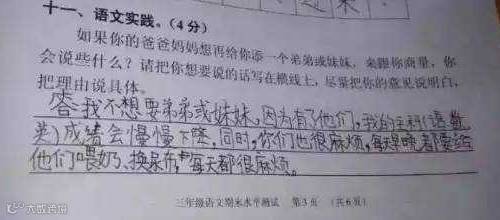 十一、语文实践。(4分)
如果你的爸爸妈妈想再给你添一个弟弟或妹妹,来跟你商量,你
会说些什么?请把你想要说的话写在横线上,尽量把你的意见说明白,
把理由说具体。
答:我不想要弟弟或妹妹,因为有了他们,我的主科(语数
英)成绩会慢慢下降,同时,你们也很麻烦,每天早晚都要给
他们喂奶、换尿布,每天都很麻烦。
三年级语文期末水平测试 第3页 (共6页)
大数跨境